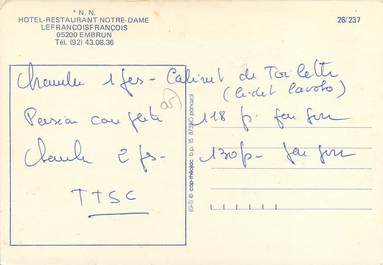 * N. N.
HOTEL-RESTAURANT NOTRE-DAME
LEFRANCOISFRANÇOIS
05200 EMBRUN
Tél. (92) 43.08.36
26/237
Chambre 1 pers - Cabinet de Toilette
(bidet lavabo)
Pension complète 118 f. par jour
Chambre 2 pers - 130 f - par jour
TTSC